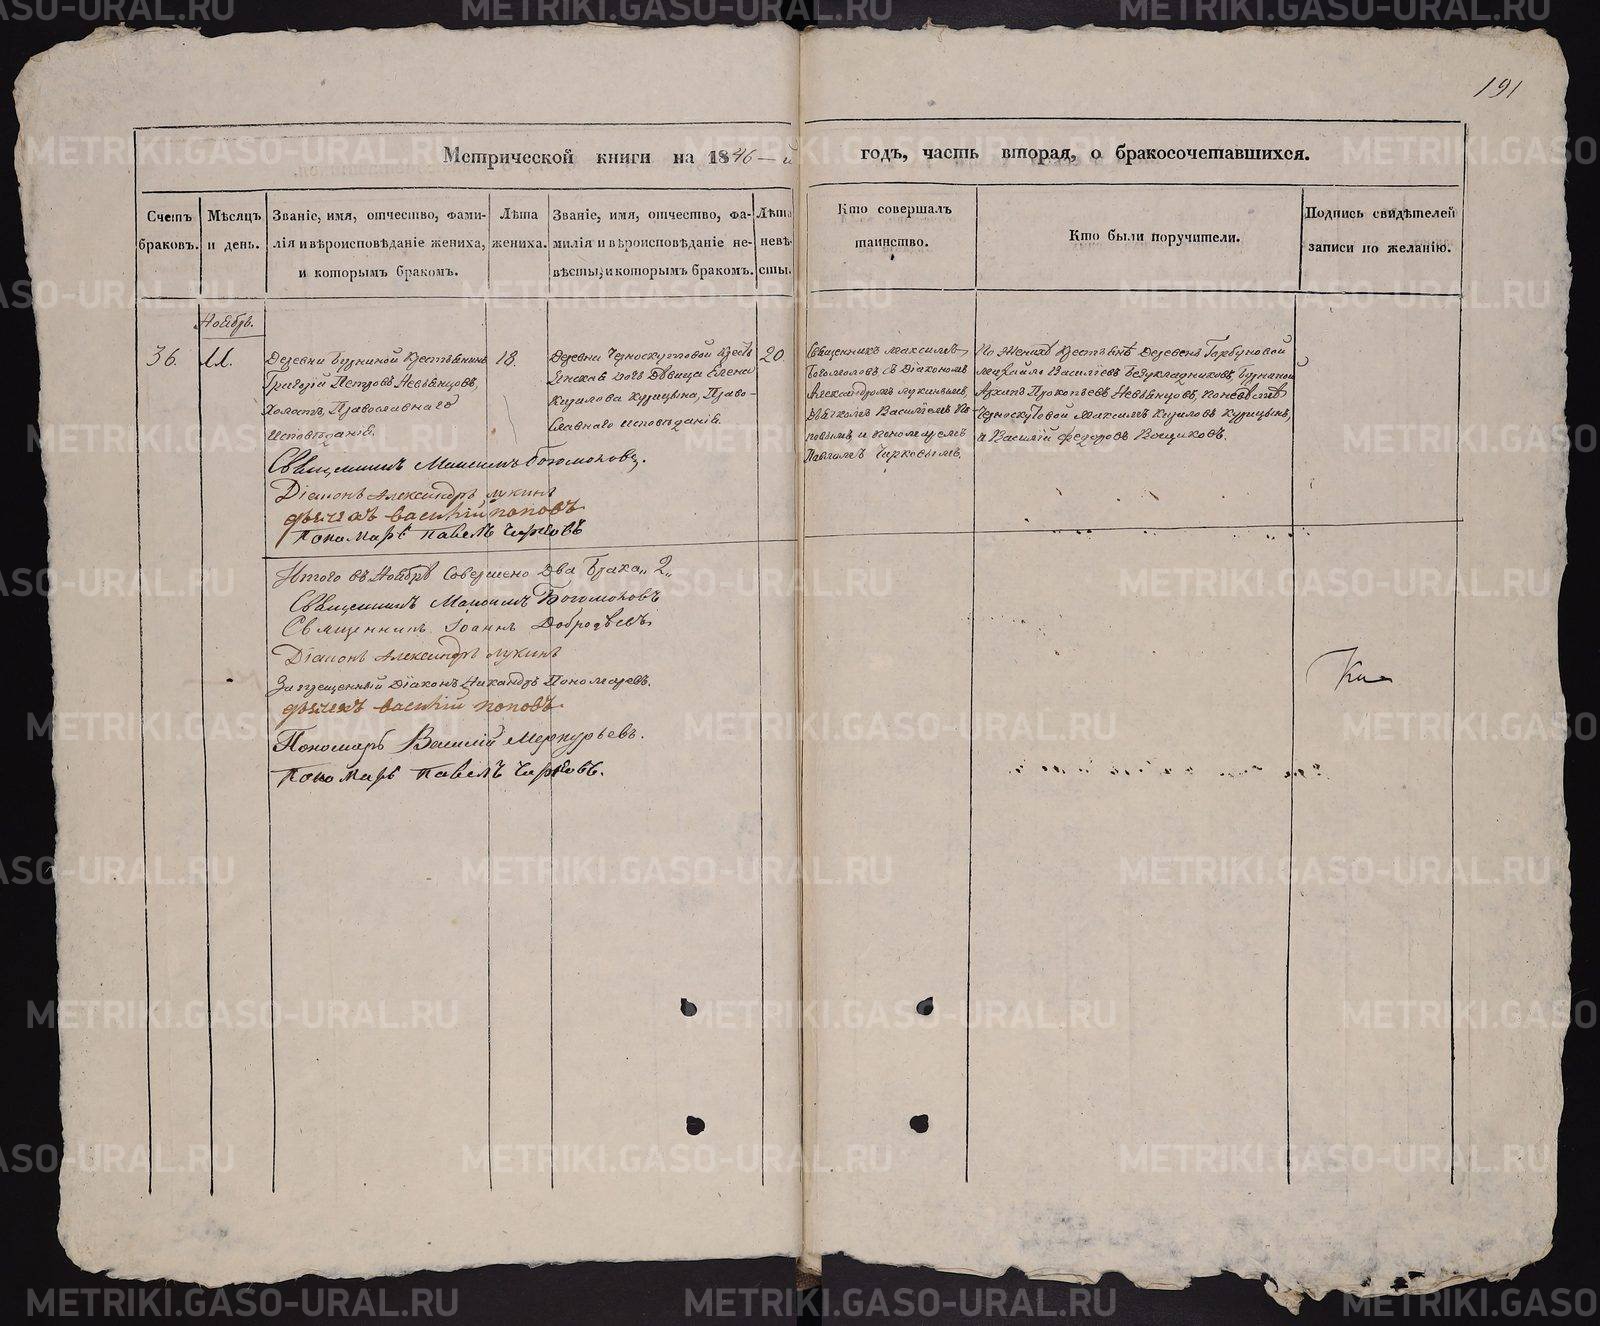 191
Метрической книги на 1846-й годъ, часть вторая, о бракосочетавшихся.
Счетъ браковъ.
Мѣсяцъ и день.
Званіе, имя, отчество, фами-
лія и вѣроисповѣданіе жениха,
и которымъ бракомъ.
Лѣта
жениха.
Званіе, имя, отчество, фа-
милія и вѣроисповѣданіе не-
вѣсты, и которымъ бракомъ.
Лѣта
невѣ-
сты.
Кто совершалъ
таинство.
Кто были поручители.
Подпись свидѣтелей
записи по желанію.
Ноябрь.
36.
11.
Деревни Бурниной Крестьянинъ
Григорій Петровъ Невьянцовъ,
Холостъ, Православнаго
исповѣданія.
18.
Деревни Черноскутовой Кресть
янская дочь Дѣвица Елена
Кирилова Курицына, Право-
славнаго исповѣданія.
20
Священникъ Максимъ
Богомоловъ съ Діакономъ
Александромъ Лукинымъ,
Дьячкомъ Василіемъ По-
повымъ, и пономаремъ
Павломъ Чирковымъ.
По Женихѣ Крестьянѣ Деревень Горбуновой
Михайло Василіевъ Безукладниковъ, Бурниной
Архипъ Прокопьевъ Невьянцовъ, по невѣстѣ
Черноскутовой Максимъ Кириловъ Курицынъ,
и Василій Федоровъ Вощиковъ.
Священникъ Максимъ Богомоловъ.
Діаконъ Александръ Лукинъ
дьячекъ василій поповъ
Пономарь Павелъ Чирковъ
Итого въ Ноябрѣ Совершено два Брака „2„
Священникъ Максимъ Богомоловъ
Священникъ Іоаннъ Добродѣевъ
Діаконъ Александръ Лукинъ
Запрещенный Діаконъ Никандръ Пономаревъ.
дьячекъ василій поповъ
Пономарь Василій Меркурьевъ.
Пономарь Павелъ Чирковъ.
METRIKI.GASO-URAL.RU